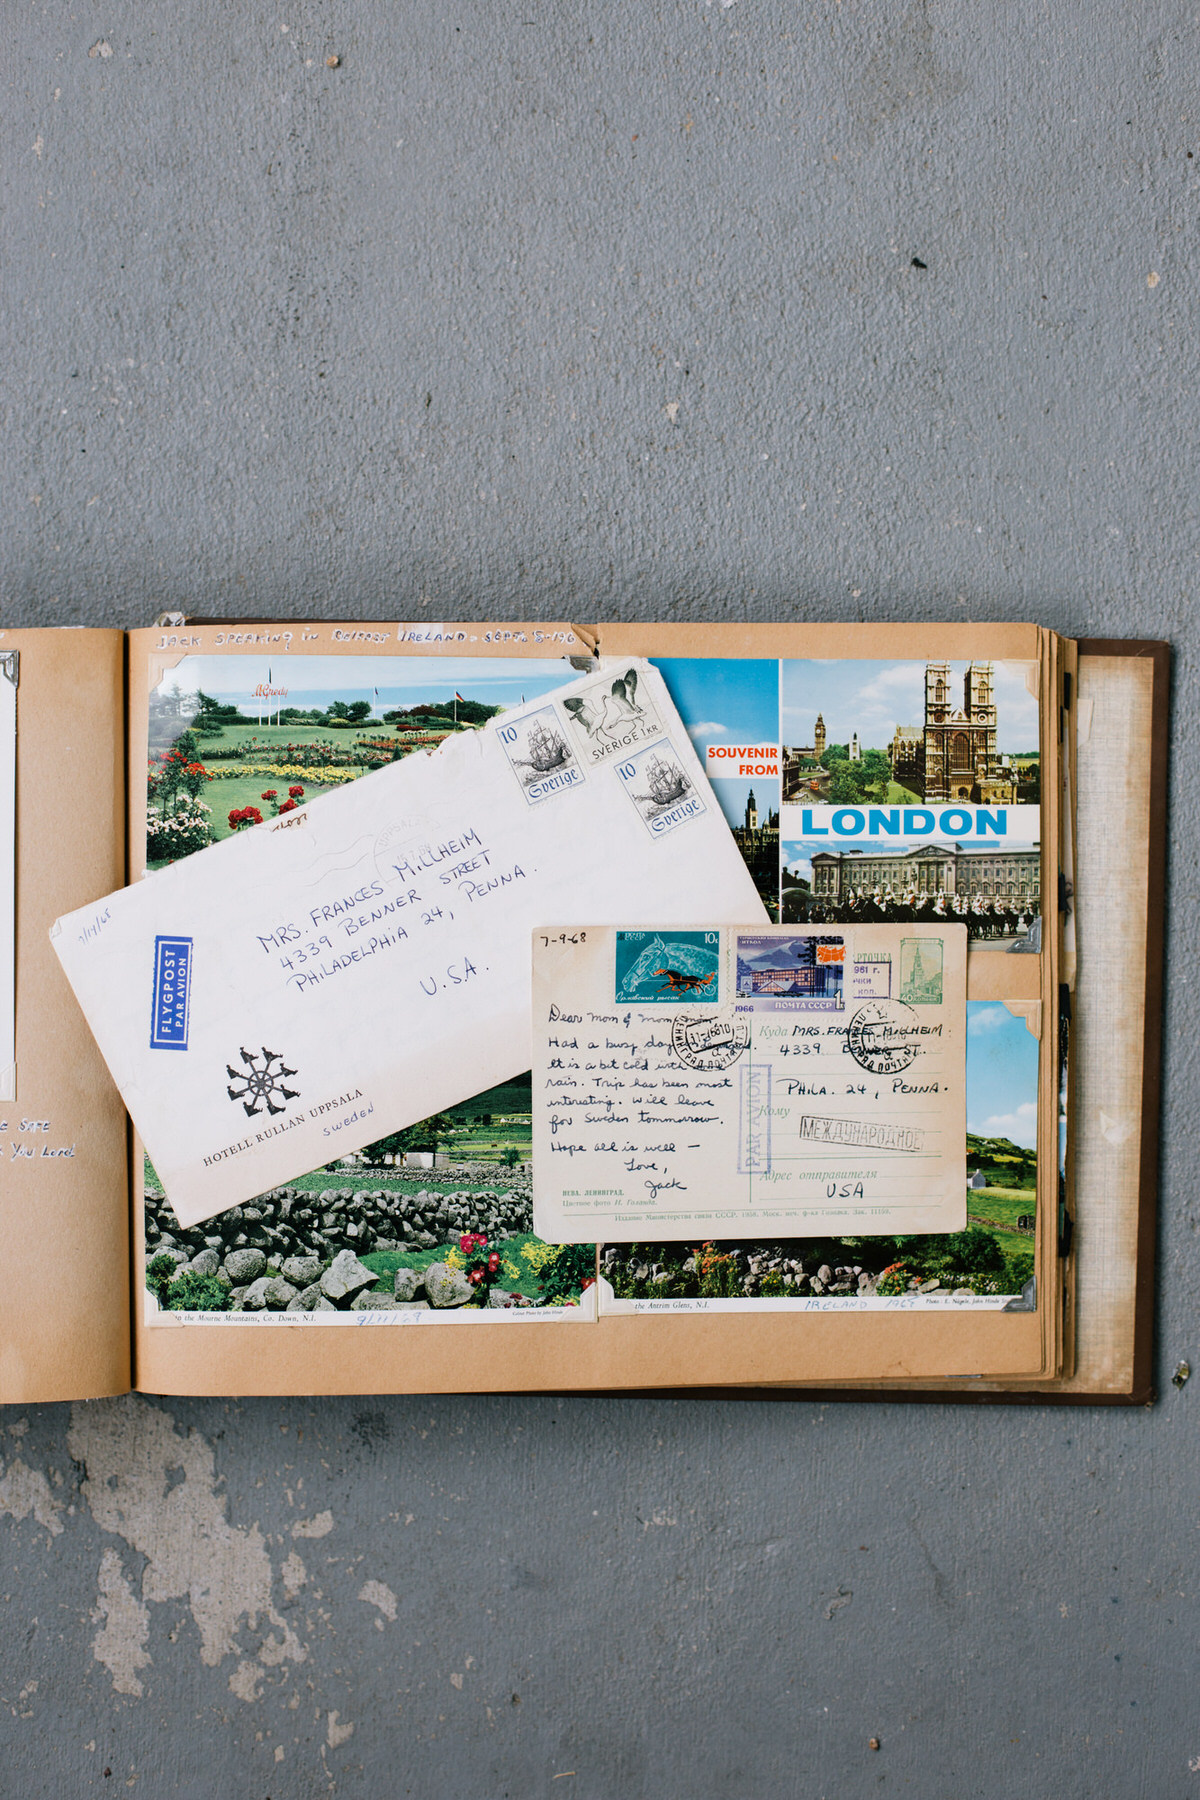 JACK SPEAKING in Belfast IRELAND, SEPT. 8-196
McGredy
10
Sverige
SVERIGE 1 KR
10
Sverige
7/14/68
MRS. FRANCES MILLHEIM
4339 BENNER STREET
PHILADELPHIA 24, PENNA.
U.S.A.
FLYGPOST
PAR AVION
HOTELL RULLAN UPPSALA
SWEDEN
SOUVENIR
FROM
LONDON
7-9-68
ПОЧТА
СССР
10к
Орловский рысак
1966
ПОЧТА СССР
961 г.
Dear Mom &
Had a busy day
It is a bit cold with
rain. Trip has been most
interesting. Will leave
for Sweden tommorrow.
Hope all is well —
Love,
Jack
Куда MRS. FRANCES MILLHEIM
4339 BENNER ST.
PHILA. 24, PENNA.
Кому
PAR AVION
МЕЖДУНАРОДНОЕ
Адрес отправителя
USA
НЕВА. ЛЕНИНГРАД.
Цветное фото И. Голанда.
Издание Министерства связи СССР.
the Mourne Mountains, Co. Down, N.I.
9/11/68
Colour Photo by John Hinde
the Antrim Glens, N.I.
IRELAND 1968
Photo - E. Nägele, John Hinde
SAFE
YOU LORD.